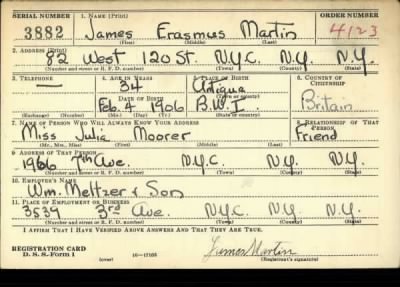 SERIAL NUMBER 1. NAME (Print) ORDER NUMBER
3882 James Erasmus Martin 4123
(First) (Middle) (Last)
2. ADDRESS (Print)
82 West 120 St. N.Y.C. N.Y. N.Y.
(Number and street or R. F. D. number) (Town) (County) (State)
3. TELEPHONE 4. AGE IN YEARS 5. PLACE OF BIRTH 6. COUNTRY OF CITIZENSHIP
— 34 Antigua
DATE OF BIRTH (Town or county)
Feb. 4 1906 B.W.I. Britain
(Exchange) (Number) (Mo.) (Day) (Yr.) (State or country)
7. NAME OF PERSON WHO WILL ALWAYS KNOW YOUR ADDRESS 8. RELATIONSHIP OF THAT PERSON
Miss Julia Moorer Friend
(Mr., Mrs., Miss) (First) (Middle) (Last)
9. ADDRESS OF THAT PERSON
1966 7th Ave. N.Y.C. N.Y. N.Y.
(Number and street or R. F. D. number) (Town) (County) (State)
10. EMPLOYER'S NAME
Wm. Meltzer & Son
11. PLACE OF EMPLOYMENT OR BUSINESS
3539 3rd Ave. N.Y.C. N.Y. N.Y.
(Number and street or R. F. D. number) (Town) (County) (State)
I AFFIRM THAT I HAVE VERIFIED ABOVE ANSWERS AND THAT THEY ARE TRUE.
REGISTRATION CARD James Martin
D. S. S. Form 1 (over) 16—17105 (Registrant's signature)